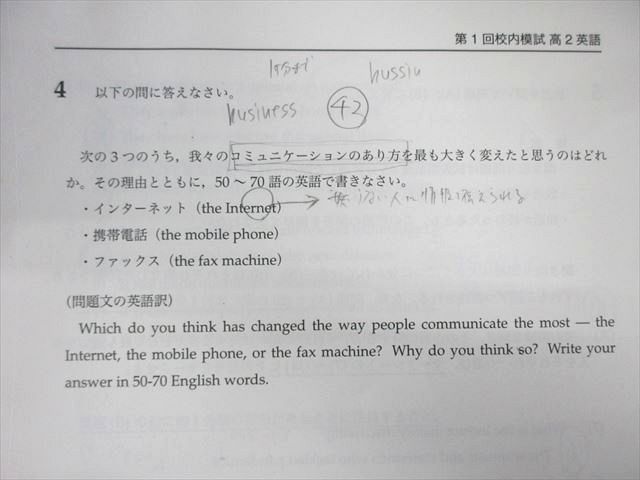 第1回校内模試 高2英語
4 以下の問に答えなさい。
business 42
次の3つのうち，我々のコミュニケーションのあり方を最も大きく変えたと思うのはどれ
か。その理由とともに，50～70語の英語で書きなさい。
・インターネット（the Internet）
・携帯電話（the mobile phone）
・ファックス（the fax machine）
(問題文の英語訳)
Which do you think has changed the way people communicate the most — the
Internet, the mobile phone, or the fax machine? Why do you think so? Write your
answer in 50-70 English words.